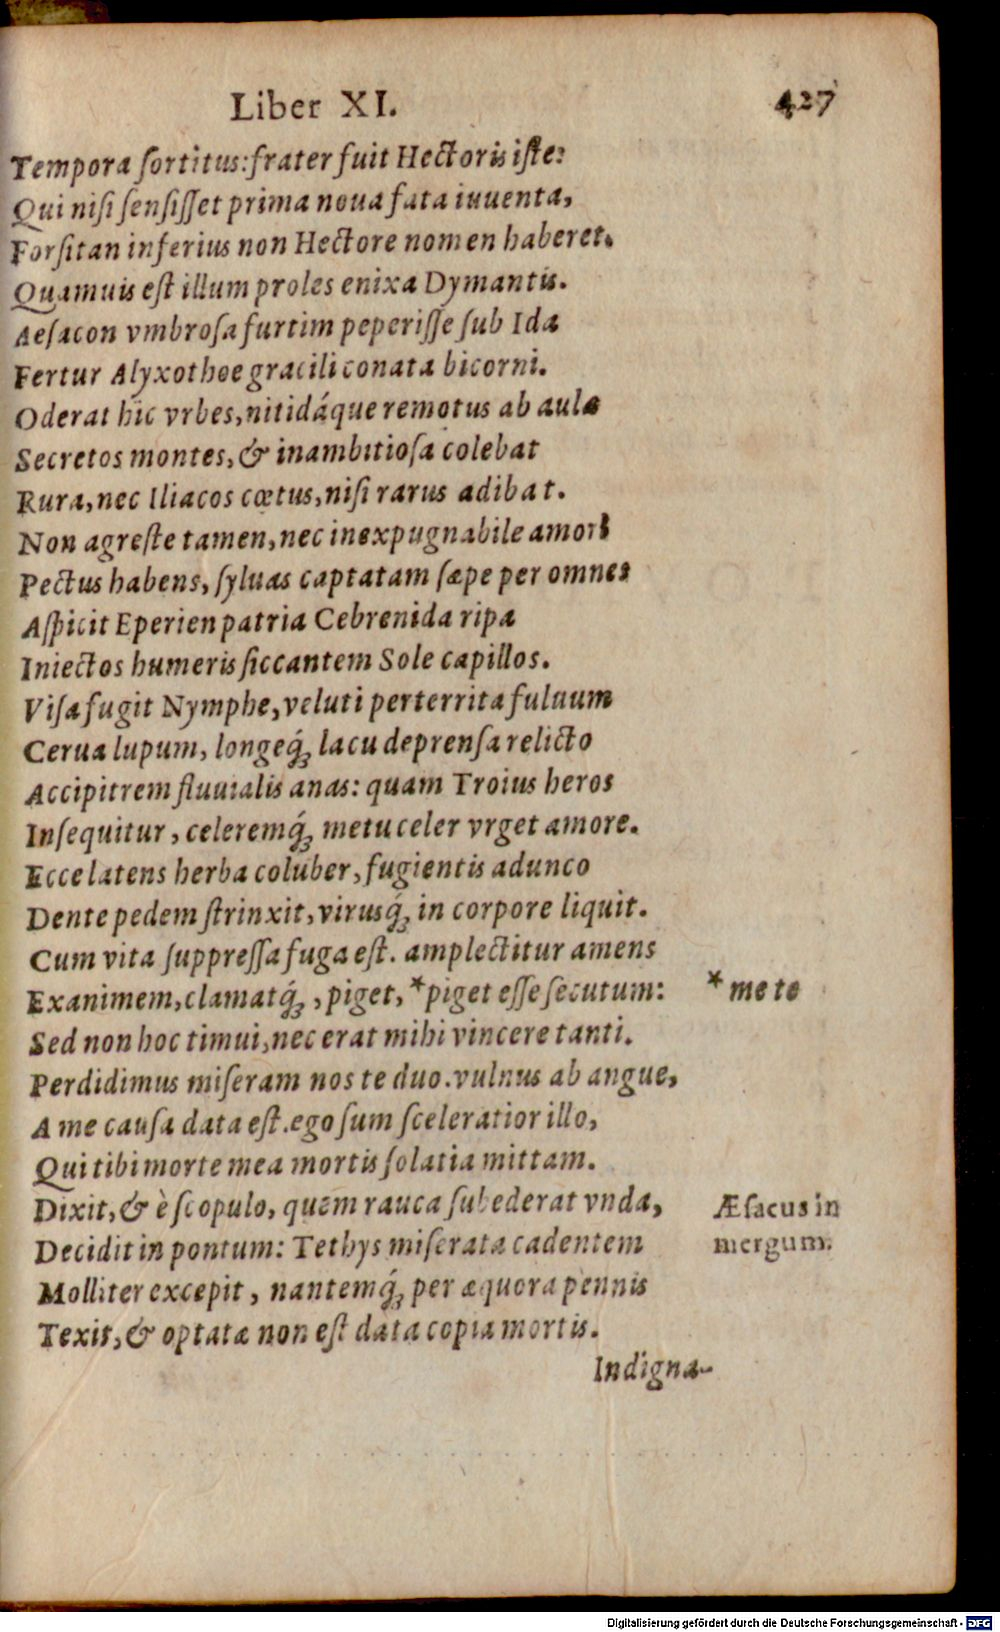 Liber XI. 427
Tempora ſortitus: frater fuit Hectoris iſte:
Qui niſi ſenſiſſet prima noua fata iuuenta,
Forſitan inferius non Hectore nomen haberet.
Quamuis eſt illum proles enixa Dymantis.
Aeſacon vmbroſa furtim peperiſſe ſub Ida
Fertur Alyxothoe gracili conata bicorni.
Oderat hic vrbes, nitidáque remotus ab aula
Secretos montes, & inambitioſa colebat
Rura, nec Iliacos cœtus, niſi rarus adibat.
Non agreſte tamen, nec inexpugnabile amori
Pectus habens, ſyluas captatam ſæpe per omnes
Aſpicit Eperien patria Cebrenida ripa
Iniectos humeris ſiccantem Sole capillos.
Viſa fugit Nymphe, veluti perterrita fuluum
Cerua lupum, longeq́; lacu deprenſa relicto
Accipitrem fluuialis anas: quam Troius heros
Inſequitur, celeremq́; metu celer vrget amore.
Ecce latens herba coluber, fugientis adunco
Dente pedem ſtrinxit, virusq́; in corpore liquit.
Cum vita ſuppreſſa fuga eſt. amplectitur amens
Exanimem, clamatq́;, piget, *piget eſſe ſecutum:
* me te
Sed non hoc timui, nec erat mihi vincere tanti.
Perdidimus miſeram nos te duo. vulnus ab angue,
A me cauſa data eſt. ego ſum ſceleratior illo,
Qui tibi morte mea mortis ſolatia mittam.
Dixit, & è ſcopulo, quem rauca ſubederat vnda,
Æſacus in
Decidit in pontum: Tethys miſerata cadentem
mergum.
Molliter excepit, nantemq́; per æquora pennis
Texit, & optatæ non eſt data copia mortis.
Indigna-
Digitalisierung gefördert durch die Deutsche Forschungsgemeinschaft - DFG